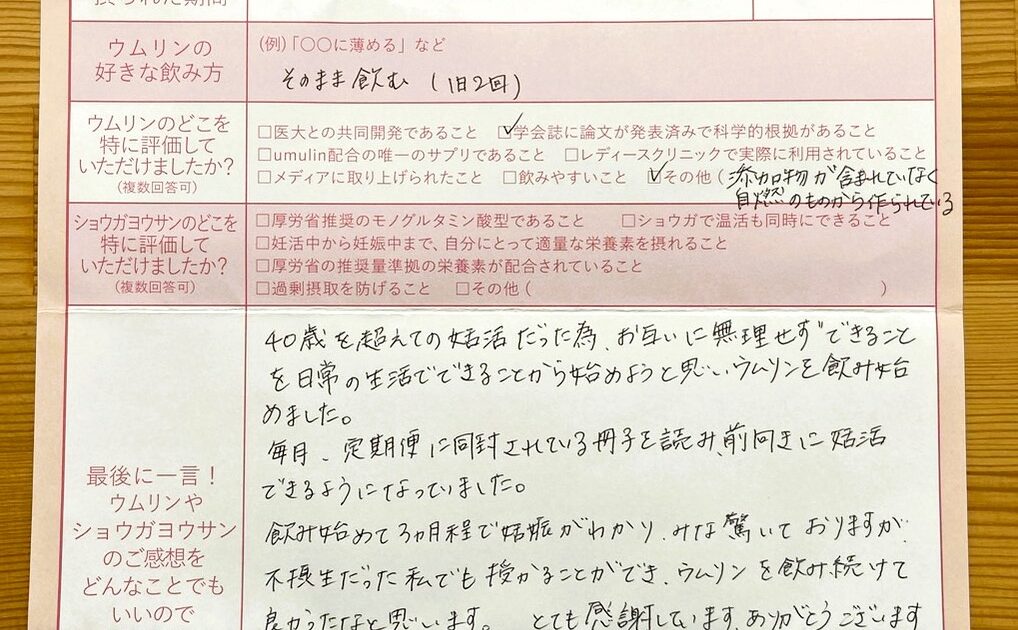 摂られた期間
ウムリンの
好きな飲み方
(例)「〇〇に薄める」など
そのまま飲む (1日2回)
ウムリンのどこを
特に評価して
いただけましたか?
(複数回答可)
□医大との共同開発であること ☑学会誌に論文が発表済みで科学的根拠があること
□umulin配合の唯一のサプリであること □レディースクリニックで実際に利用されていること
□メディアに取り上げられたこと □飲みやすいこと ☑その他(添加物が含まれていなく
自然のものから作られている
ショウガヨウサンのどこを
特に評価して
いただけましたか?
(複数回答可)
□厚労省推奨のモノグルタミン酸型であること □ショウガで温活も同時にできること
□妊活中から妊娠中まで、自分にとって適量な栄養素を摂れること
□厚労省の推奨量準拠の栄養素が配合されていること
□過剰摂取を防げること □その他( )
最後に一言!
ウムリンや
ショウガヨウサン
のご感想を
どんなことでも
いいので
40歳を超えての妊活だった為、お互いに無理せずできること
を日常の生活でできることから始めようと思い、ウムリンを飲み始
めました。
毎月、定期便に同封されている冊子を読み、前向きに妊活
できるようになっていました。
飲み始めて3ヵ月程で妊娠がわかり、みな驚いておりますが、
不摂生だった私でも授かることができ、ウムリンを飲み続けて
良かったなと思います。 とても感謝しています。ありがとうございます